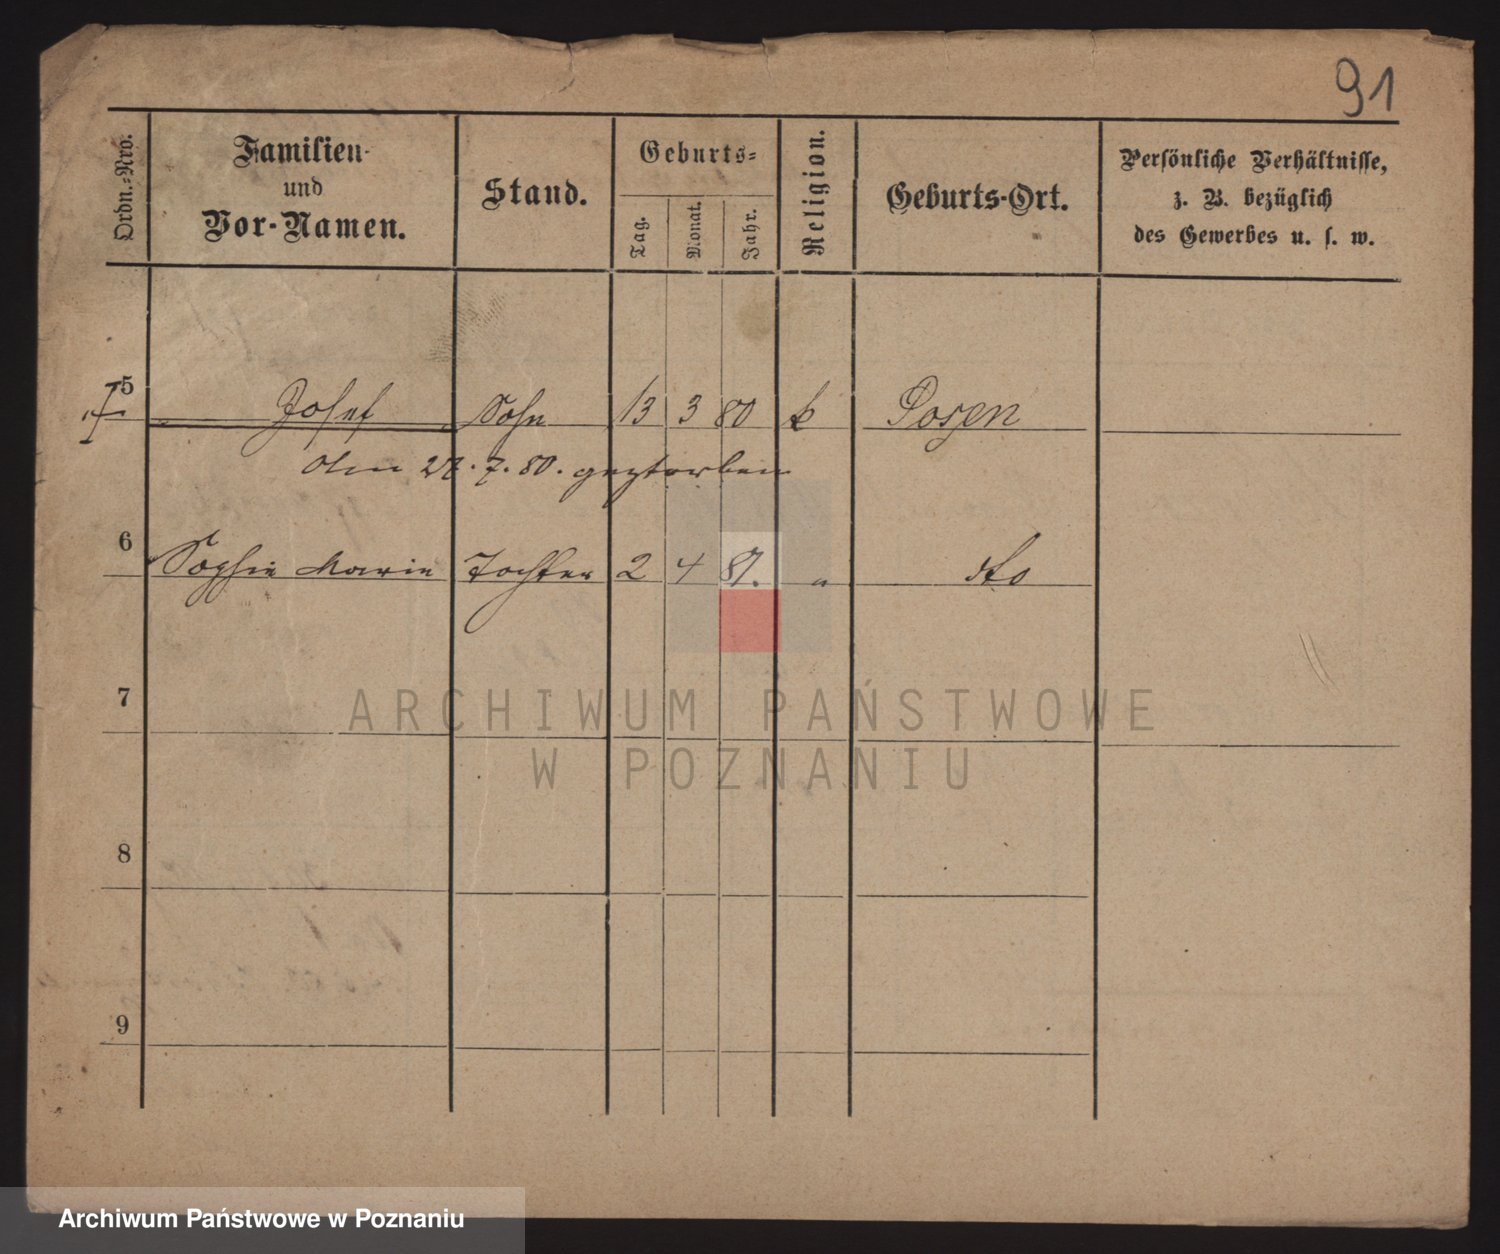 91
Ordn.-Nro.
Familien-
und
Vor-Namen.
Stand.
Geburts-
Tag.
Monat.
Jahr.
Religion.
Geburts-Ort.
Persönliche Verhältnisse,
z. B. bezüglich
des Gewerbes u. s. w.
5 Josef Sohn 13 3 80 k Posen
den 27.7.80. gestorben
6 Sophie Marie Tochter 2 4 81. " dto
7
ARCHIWUM PAŃSTWOWE
W POZNANIU
8
9
Archiwum Państwowe w Poznaniu